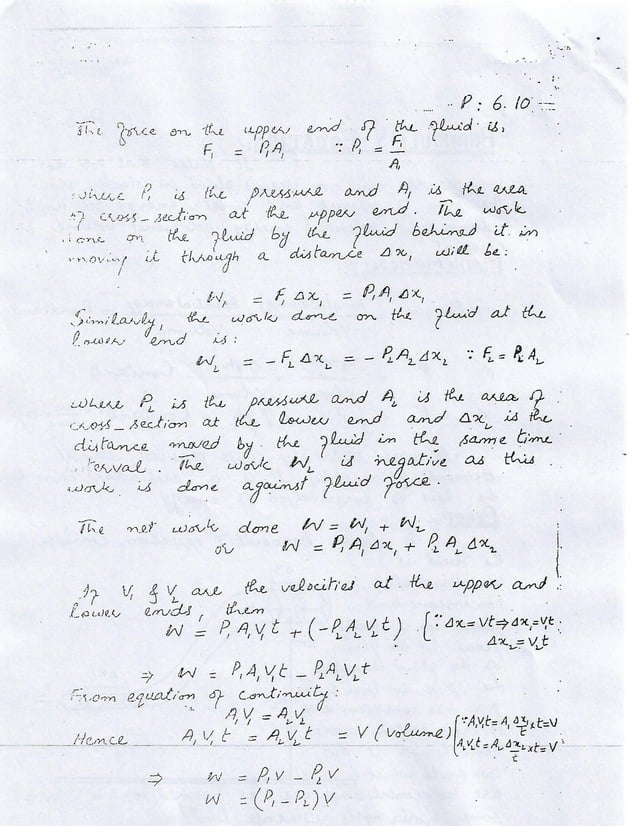 P : 6.10
The force on the upper end of the fluid is,
F₁ = P₁A₁ ∵ P₁ = F₁/A₁
where P₁ is the pressure and A₁ is the area
of cross-section at the upper end. The work
done on the fluid by the fluid behined it in
moving it through a distance Δx₁ will be:
W₁ = F₁ Δx₁ = P₁A₁ Δx₁
Similarly, the work done on the fluid at the
lower end is:
W₂ = -F₂ Δx₂ = -P₂A₂ Δx₂ ∵ F₂ = P₂A₂
where P₂ is the pressure and A₂ is the area of
cross-section at the lower end and Δx₂ is the
distance moved by the fluid in the same time
interval. The work W₂ is negative as this
work is done against fluid force.
The net work done W = W₁ + W₂
or W = P₁A₁Δx₁ + P₂A₂Δx₂
If V₁ & V₂ are the velocities at the upper and
lower ends, then
W = P₁A₁V₁t + (-P₂A₂V₂t) [∵ Δx = Vt ⇒ Δx₁ = V₁t
Δx₂ = V₂t
⇒ W = P₁A₁V₁t - P₂A₂V₂t
From equation of continuity:
A₁V₁ = A₂V₂
Hence A₁V₁t = A₂V₂t = V (volume) [∵ A₁V₁t = A₁ Δx₁/t × t = V
A₂V₂t = A₂ Δx₂/t × t = V
⇒ W = P₁V - P₂V
W = (P₁ - P₂)V